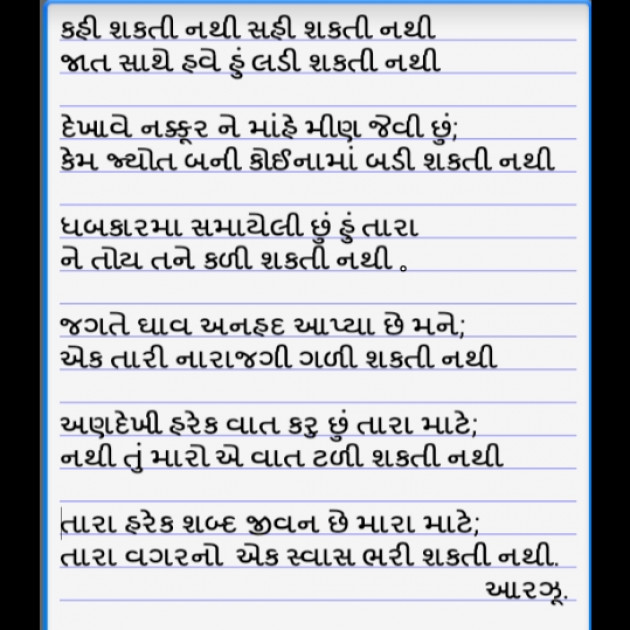 કહી શકતી નથી સહી શકતી નથી
જાત સાથે હવે હું લડી શકતી નથી
દેખાવે નક્કૂર ને માંહે મીણ જેવી છું;
કેમ જ્યોત બની કોઈનામાં બડી શકતી નથી
ધબકારમા સમાયેલી છું હું તારા
ને તોય તને કળી શકતી નથી .
જગતે ઘાવ અનહદ આપ્યા છે મને;
એક તારી નારાજગી ગળી શકતી નથી
અણદેખી હરેક વાત કરુ છું તારા માટે;
નથી તું મારો એ વાત ટળી શકતી નથી
તારા હરેક શબ્દ જીવન છે મારા માટે;
તારા વગરનો એક સ્વાસ ભરી શકતી નથી.
આરઝૂ.